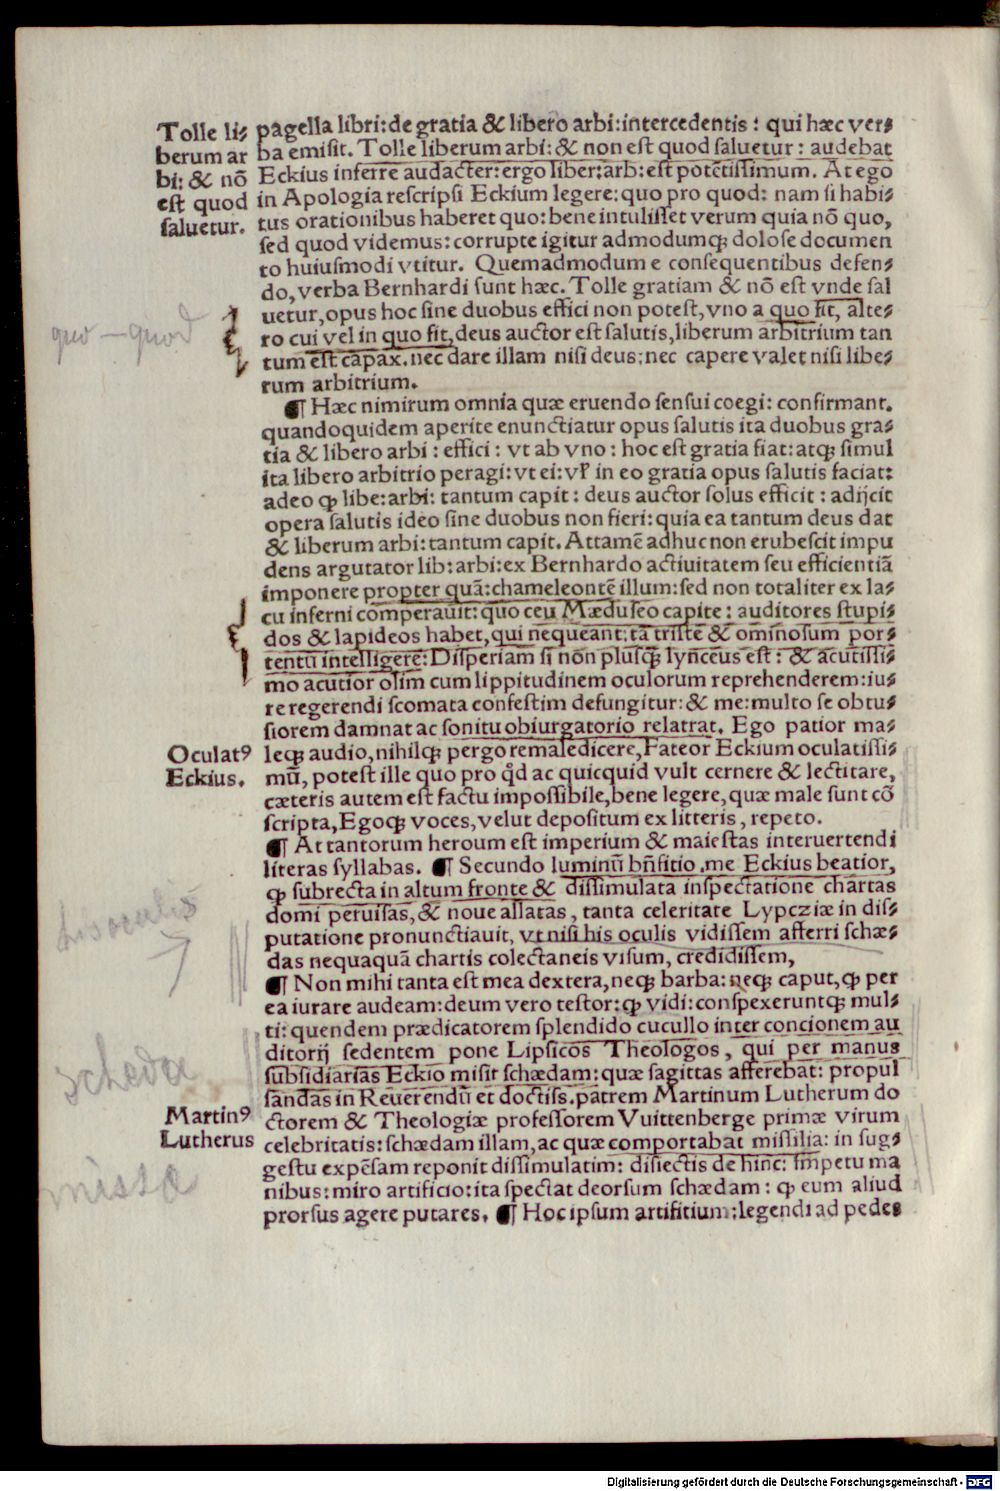 Tolle li⸗
berum ar
bi: & nō
est quod
saluetur.
pagella libri: de gratia & libero arbi: intercedentis : qui hæc ver⸗
ba emisit. Tolle liberum arbi: & non est quod saluetur : audebat
Eckius inferre audacter: ergo liber: arb: est potētissimum. At ego
in Apologia rescripsi Eckium legere: quo pro quod: nam si habi⸗
tus orationibus haberet quo: bene intulisset verum quia nō quo,
sed quod videmus: corrupte igitur admodumqꝫ dolose documen
to huiusmodi vtitur. Quemadmodum e consequentibus defen⸗
do, verba Bernhardi sunt hæc. Tolle gratiam & nō est vnde sal
uetur, opus hoc sine duobus effici non potest, vno a quo fit, alte⸗
ro cui vel in quo fit, deus auctor est salutis, liberum arbitrium tan
tum est capax. nec dare illam nisi deus: nec capere valet nisi libe⸗
rum arbitrium.
quo — quod
¶ Hæc nimirum omnia quæ eruendo sensui coegi: confirmant.
quandoquidem aperite enunctiatur opus salutis ita duobus gra⸗
tia & libero arbi : effici : vt ab vno : hoc est gratia fiat: atqꝫ simul
ita libero arbitrio peragi: vt ei: vľ in eo gratia opus salutis faciat:
adeo ꝙ libe: arbi: tantum capit : deus auctor solus efficit : adijcit
opera salutis ideo sine duobus non fieri: quia ea tantum deus dat
& liberum arbi: tantum capit. Attamē adhuc non erubescit impu
dens argutator lib: arbi: ex Bernhardo actiuitatem seu efficientiā
imponere propter quā: chameleontē illum: sed non totaliter ex la⸗
cu inferni comperauit: quo ceu Mæduseo capite : auditores stupi⸗
dos & lapideos habet, qui nequeant: tā triste & ominosum por⸗
tentū intelligere: Disperiam si non plusqꝫ lynceus est : & acutissi⸗
mo acutior olim cum lippitudinem oculorum reprehenderem: iu⸗
re regerendi scomata confestim defungitur: & me: multo se obtu⸗
siorem damnat ac sonitu obiurgatorio relatrat. Ego patior ma⸗
leqꝫ audio, nihilqꝫ pergo remaledicere, Fateor Eckium oculatissi⸗
mū, potest ille quo pro qd̕ ac quicquid vult cernere & lectitare,
cæteris autem est factu impossibile, bene legere, quæ male sunt cō
scripta, Egoqꝫ voces, velut depositum ex litteris, repeto.
Oculatꝰ
Eckius.
¶ At tantorum heroum est imperium & maiestas interuertendi
literas syllabas. ¶ Secundo luminū bn̄fitio, me Eckius beatior,
ꝙ subrecta in altum fronte & dissimulata inspectatione chartas
domi peruisas, & noue allatas, tanta celeritate Lypcziæ in dis⸗
putatione pronunctiauit, vt nisi his oculis vidissem afferri schæ⸗
das nequaquā chartis colectaneis visum, credidissem,
his oculis
¶ Non mihi tanta est mea dextera, neqꝫ barba: neqꝫ caput, ꝙ per
ea iurare audeam: deum vero testor: ꝙ vidi: conspexeruntqꝫ mul⸗
ti: quendem prædicatorem splendido cucullo inter concionem au
ditorij sedentem pone Lipsicos Theologos, qui per manus
subsidiarias Eckio misit schædam: quæ sagittas afferebat: propul
sandas in Reuerendū et doctiss. patrem Martinum Lutherum do
ctorem & Theologiæ professorem Vuittenberge primæ virum
celebritatis: schædam illam, ac quæ comportabat missilia: in sug⸗
gestu expēsam reponit dissimulatim: disiectis de hinc: impetu ma
nibus: miro artificio: ita spectat deorsum schædam : ꝙ eum aliud
prorsus agere putares. ¶ Hoc ipsum artifitium: legendi ad pedes
schedæ
Martinꝰ
Lutherus
missa
Digitalisierung gefördert durch die Deutsche Forschungsgemeinschaft - DFG